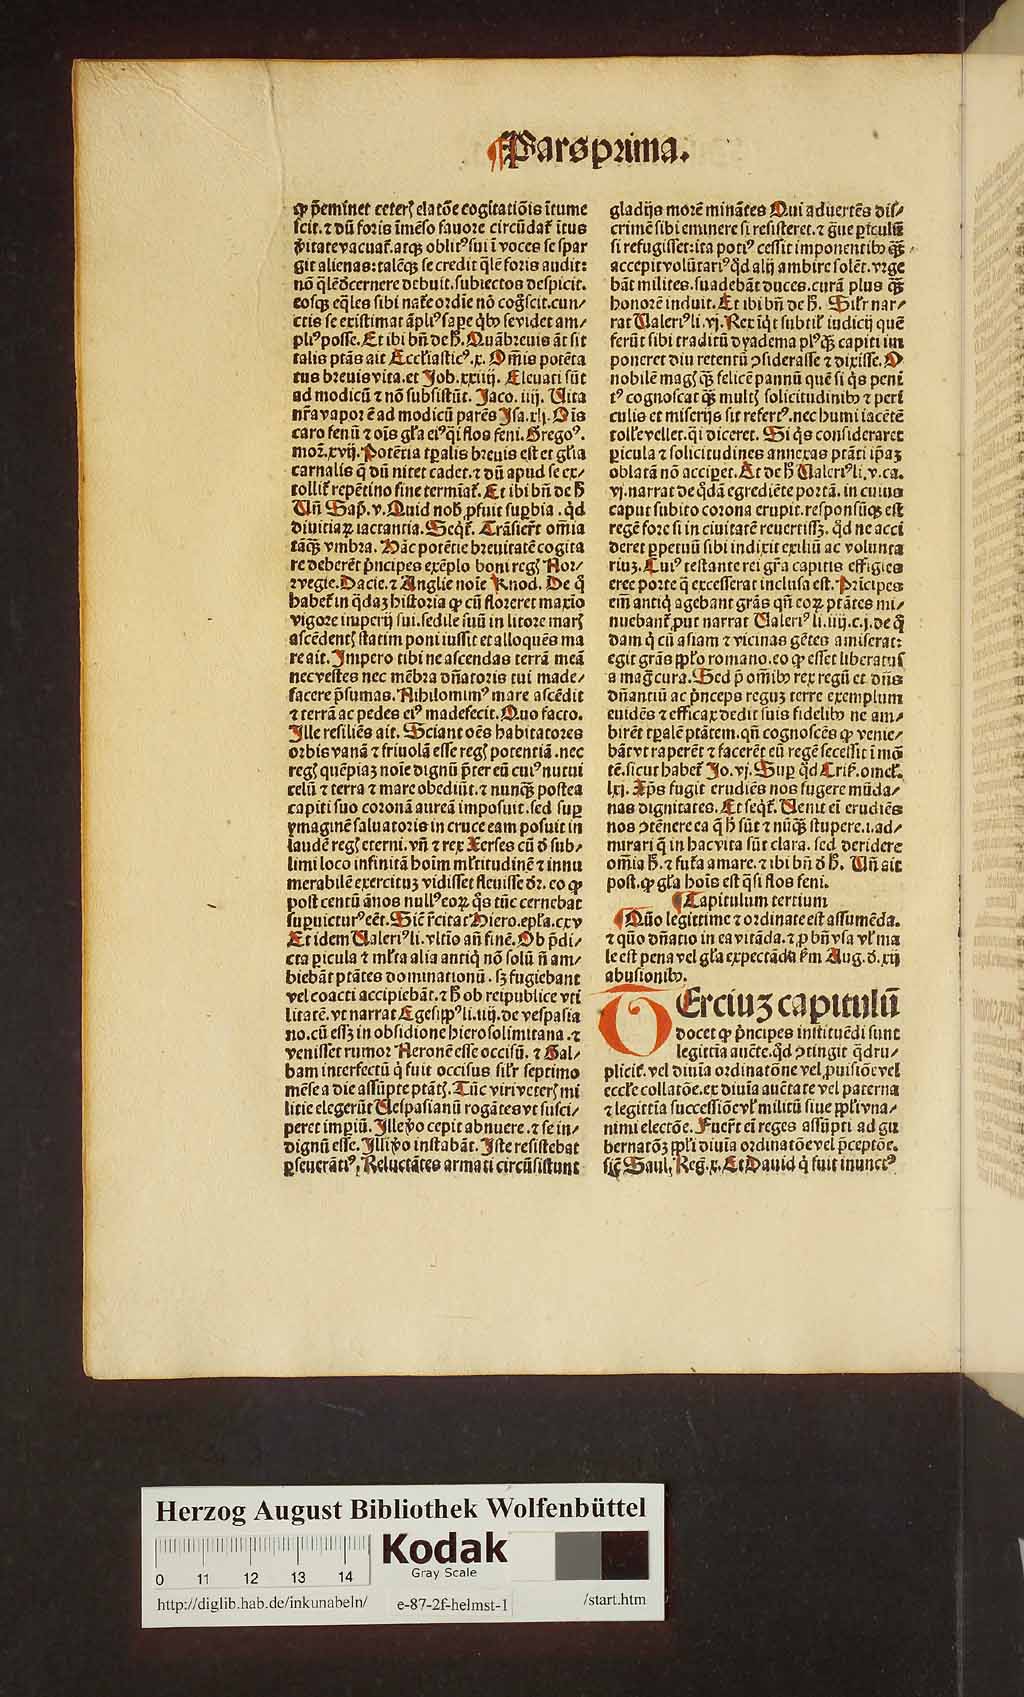 ¶Pars prima.
ꝙ p̄eminet ceterꝭ elatōe cogitatiōis ītume
scit. ⁊ dū foris īmēso fauore circūdaꝉ ītus
v̓itate vacuaꝉ. atqꝫ oblitꝰ sui ī voces se spar
git alienas: talēqꝫ se credit q̄lē foris audit:
nō q̄lē d̓cernere debuit. subiectos despicit.
eosqꝫ eq̄les sibi naꝉe ordīe nō coḡscit. cun⸗
ctis se existimat āpliꝰ saꝑe q̄bꝰ se videt am⸗
pliꝰ posse. Et ibi bn̄ de h̄. Quābreuis āt sit
talis ptās ait Eccl̓iasticꝰ. x. Om̄is potēta
tus breuis vita. et Job. xxiiij. Eleuati sūt
ad modicū ⁊ nō subsistūt. Jaco. iiij. Uita
nr̄a vapor ē ad modicū parēs Jsa. xlj. Oīs
caro fenū ⁊ oīs gl̓a eiꝰ q̄i flos feni. Gregoꝰ.
moꝝ. xvij. Potētia tꝑalis breuis est et gl̓ia
carnalis q̄ dū nitet cadet. ⁊ dū apud se ex⸗
tolliꝉ repētino fine termīaꝉ. Et ibi bn̄ de h̄
Un̄ Sap̄. v. Quid nob̄ ꝓfuit suꝑbia. q̇d
diuitiaꝝ iactantia. Seqꝉ. Trāsieꝉt om̄ia
tāq̄ꝫ vmbra. Hāc potētie breuitatē cogita
re deberēt p̓ncipes exēplo boni regꝭ Nor⸗
wegie. Dacie. ⁊ Anglie noīe Knod. De q̇̄
habeꝉ in q̄daꝫ historia ꝙ cū floreret maxīo
vigore imperij sui. sedile suū in litore marꝭ
ascēdentꝭ statim poni iussit et alloquēs ma
re ait. Impero tibi ne ascendas terrā meā
nec vestes nec mēbra dn̄atoris tui made⸗
facere p̄sumas. Nihilominꝰ mare ascēdit
⁊ terrā ac pedes eiꝰ madefecit. Quo facto.
Jlle resiliēs ait. Sciant oēs habitatores
orbis vanā ⁊ friuolā esse regꝭ potentiā. nec
regꝭ quēpiaꝫ noīe dignū p̄ter eū cuiꝰ nutui
celū ⁊ terra ⁊ mare obediūt. ⁊ nunq̄ꝫ postea
capiti suo coronā aureā imposuit. sed suꝑ
ymaginē saluatoris in cruce eam posuit in
laudē regꝭ eterni. vn̄ ⁊ rex Xerses cū d̓ sub⸗
limi loco infinitā hoīm mꝉtitudinē ⁊ innu
merabilē exercituꝫ vidisset fleuisse d̓r. eo ꝙ
post centū ānos nullꝰ eoꝝ q̄s tūc cernebat
suꝑuicturꝰ eēt. Sic̄ r̄citat Hiero. epl̓a. cxv
Et idem Ualeriꝰ li. vltīo an̄ finē. Ob p̄di⸗
cta ꝑicula ⁊ mꝉta alia antiq̇ nō solū n̄ am⸗
biebāt ptātes dominationū. sꝫ fugiebant
vel coacti accipiebāt. ⁊ h̄ ob reipublice vti
litatē. vt narrat Egesippꝰ li. iiij. de vespasia
no. cū essꝫ in obsidione hierosolimitana. ⁊
venisset rumor Neronē esse occisū. ⁊ Gal⸗
bam interfectū q̇ fuit occisus silr̄ septimo
mēse a die assūpte ptātꝭ. Tūc viri veterꝭ mi
litie elegerūt Uespasianū rogātes vt susci⸗
peret imꝑiū. Jlle v̓o cepit abnuere. ⁊ se in⸗
dignū esse. Jlli v̓o instabāt. Jste resistebat
ꝑseuerātiꝰ. Reluctātes armati circūsistunt
gladijs morē minātes Qui aduertēs dis⸗
crimē sibi eminere si resisteret. ⁊ g̓ue ꝑiculū
si refugisset: ita potiꝰ cessit imponentibꝰ q̄ꝫ
accepit volūtariꝰ q̇d alij ambire solēt. vrge
bāt milites. suadebāt duces. curā plus q̄ꝫ
honorē induit. Et ibi bn̄ de h̄. Silr̄ nar⸗
rat Ualeriꝰ li. vj. Rex īq̇t subtiꝉ iudicij quē
ferūt sibi traditū dyadema plꝰ q̄ꝫ capiti im
poneret diu retentū ꝯsiderasse ⁊ dixisse. O
nobilē magꝭ q̄ꝫ felicē pannū quē si q̇s peni
tꝰ cognoscat q̄ꝫ multꝭ solicitudinibꝰ ⁊ peri
culis et miserijs sit refertꝰ. nec humi iacētē
tolle vellet. q̄i diceret. Si q̇s consideraret
ꝑicula ⁊ solicitudines annexas ptāti ip̄aꝫ
oblatā nō acciꝑet. Et de h̄ Ualeriꝰ li. v. ca.
vj. narrat de q̇dā egrediēte portā. in cuius
caput subito corona erupit. responsūqꝫ est
regē fore si in ciuitatē reuertissꝫ. q̇d ne acci
deret ꝑpetuū sibi indixit exiliū ac volunta
riuꝫ. Cuiꝰ testante rei gr̄a capitis effigies
eree porte q̄ excesserat inclusa est. Prīcipes
em̄ antiq̇ agebant grās qn̄ eoꝝ ptātes mi⸗
nuebanꝉ put narrat Ualeriꝰ li. iiij. c. j. de q̇
dam q̇ cū asiam ⁊ vicinas gētes amiserat:
egit grās pplo romano. eo ꝙ esset liberatus
a maḡ cura. Sed p̄ om̄ibꝰ rex regū et dn̄s
dn̄antiū ac p̓nceps reguꝫ terre exemplum
euidēs ⁊ efficax dedit suis fidelibꝰ ne am⸗
birēt tꝑalē ptātem. qn̄ cognoscēs ꝙ venie⸗
bāt vt raperēt ⁊ facerēt eū regē secessit ī mō
tē. sicut habeꝉ Jo. vj. Suꝑ q̇d Crisꝉ. omeꝉ.
lxj. Xp̄s fugit erudiēs nos fugere mūda⸗
nas dignitates. Et seqꝉ. Uenit ei̓ erudiēs
nos ꝯtēnere ea q̄ h̄ sūt ⁊ nūq̄ꝫ stupere. i. ad⸗
mirari q̄ in hac vita sūt clara. sed deridere
om̄ia h̄. ⁊ fuꝉa amare. ⁊ ibi bn̄ d̓ h̄. Un̄ ait
post. ꝙ gl̓a hoīs est q̄si flos feni.
¶Capitulum tertium
¶Quō legittime ⁊ ordinate est assumēda.
⁊ quō dn̄atio in ea vitāda. ⁊ ꝓ bn̄ vsa vꝉ ma
le est pena vel gl̓a expectāda k̓m Aug. d̓. xij
abusionibꝰ.
TErciuꝫ capitulū
docet ꝙ p̓ncipes instituēdi sunt
legittīa auc̄te. q̇d ꝯtingit q̄dru⸗
pliciꝉ. vel diuīa ordinatōne vel ꝓuisiōe vel
eccl̓e collatōe. et diuīa auc̄tate vel paterna
⁊ legittīa successiōe vꝉ militū siue ppl̓i vna⸗
nimi electōe. Fueꝉt ei̓ reges assūpti ad gu
bernatōꝫ ppl̓i diuīa ordinatōe vel p̄ceptōe.
sic̄ Saul, Reg̓. x. Et Dauid q̇ fuit inunctꝰ
Herzog August Bibliothek Wolfenbüttel
0 11 12 13 14
Kodak
Gray Scale
http://diglib.hab.de/inkunabeln/ e-87-2f-helmst-1 /start.htm